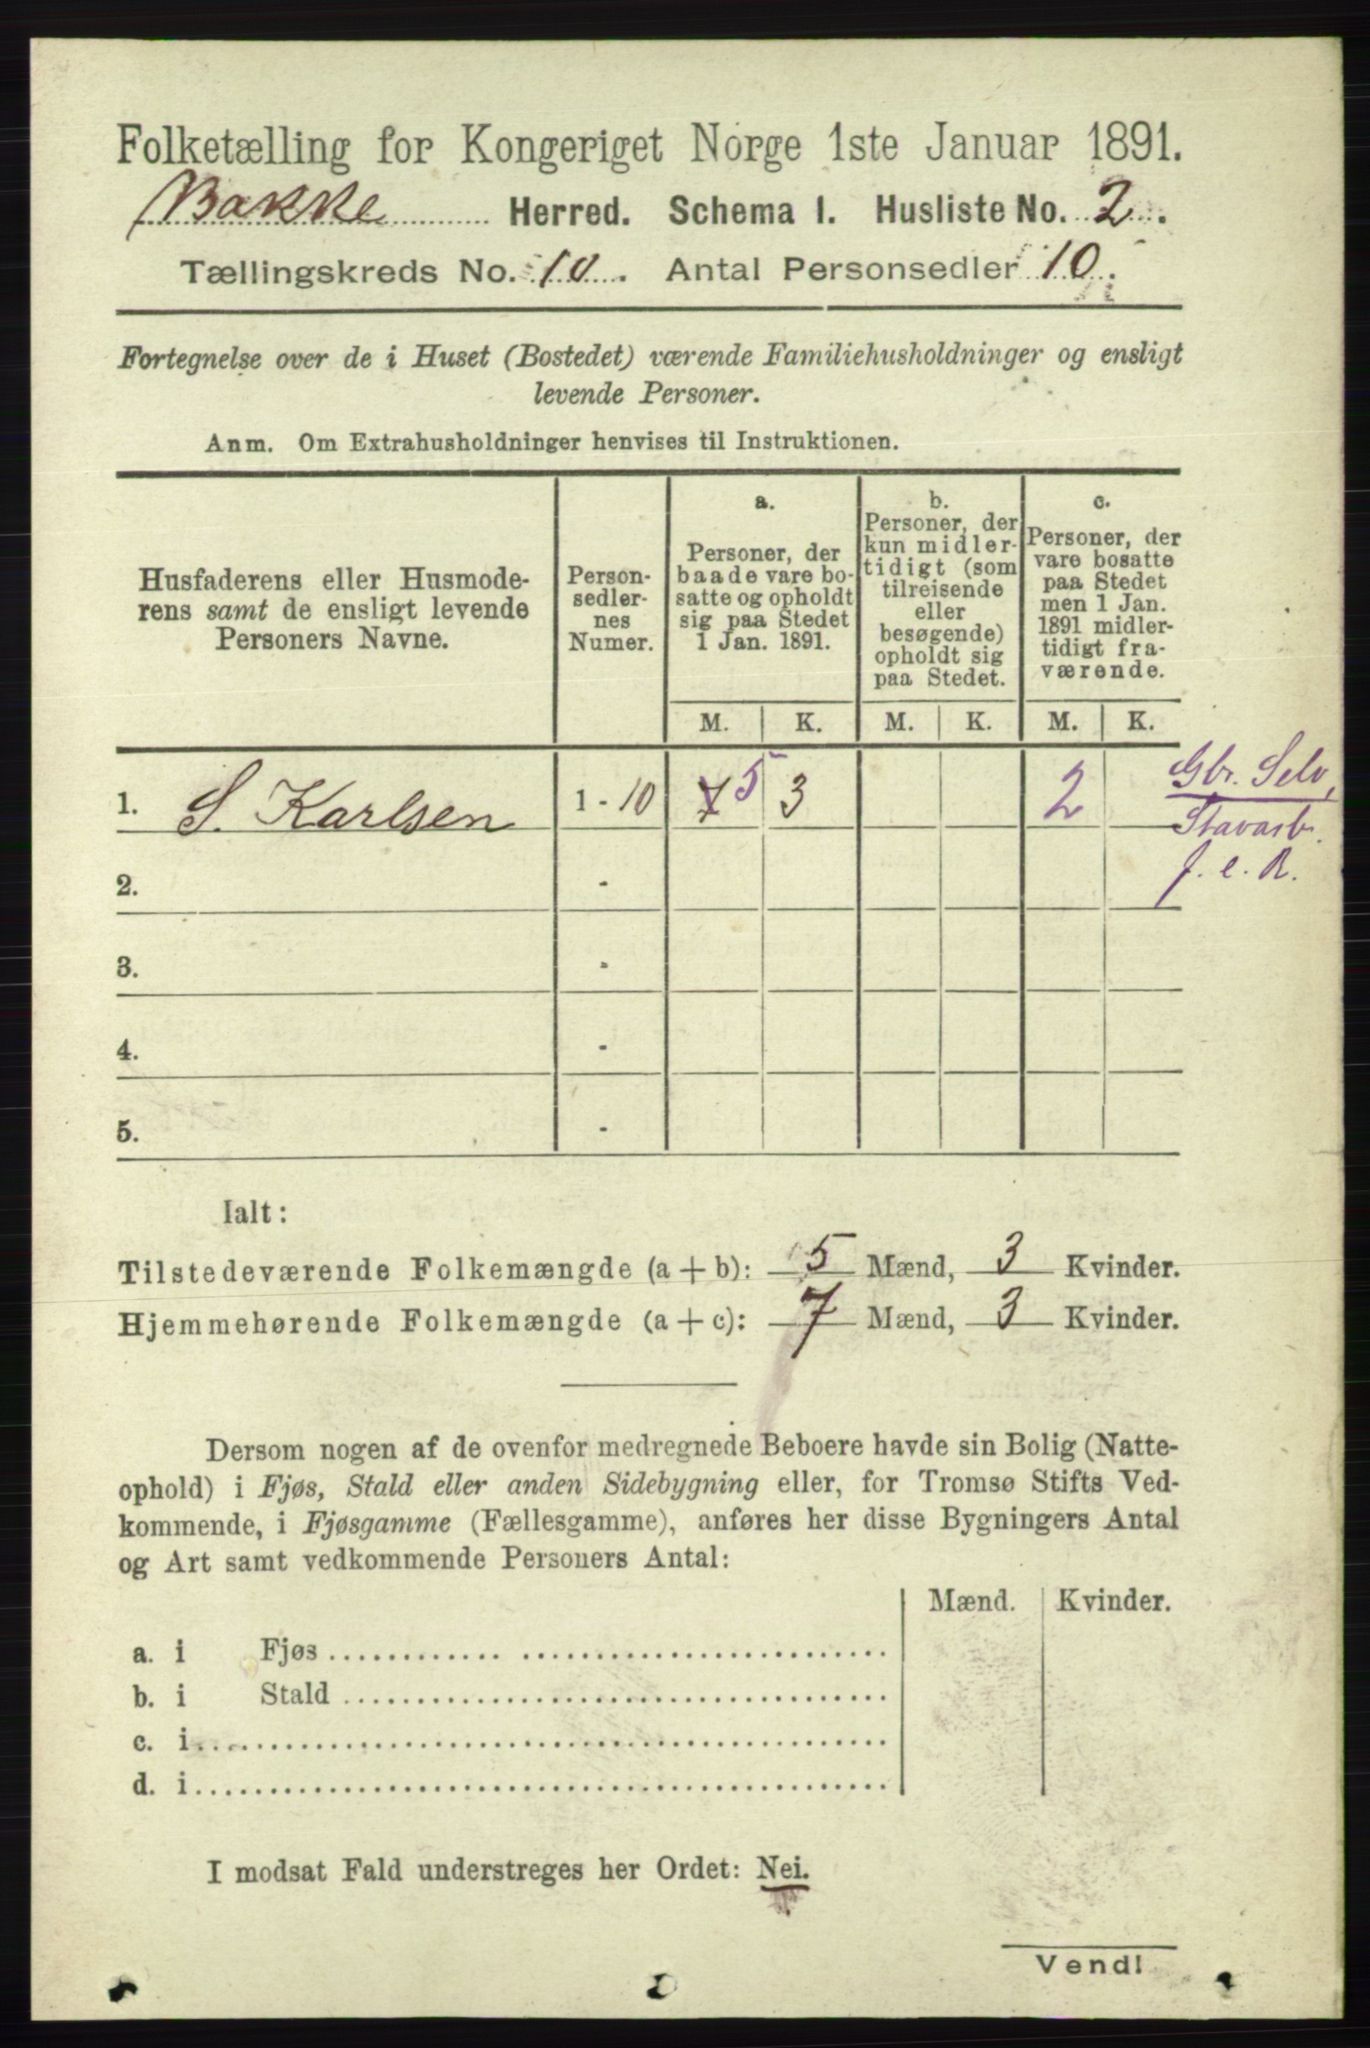 Folketælling for Kongeriget Norge 1ste Januar 1891.
Bakke Herred. Schema I. Husliste No. 2.
Tællingskreds No. 10. Antal Personsedler 10.
Fortegnelse over de i Huset (Bostedet) værende Familiehusholdninger og ensligt
levende Personer.
Anm. Om Extrahusholdninger henvises til Instruktionen.
Husfaderens eller Husmode-
rens samt de ensligt levende
Personers Navne.
Person-
sedler-
nes
Numer.
a.
Personer, der
baade vare bo-
satte og opholdt
sig paa Stedet
1 Jan. 1891.
b.
Personer, der
kun midler-
tidigt (som
tilreisende
eller
besøgende)
opholdt sig
paa Stedet.
c.
Personer, der
vare bosatte
paa Stedet
men 1 Jan.
1891 midler-
tidigt fra-
værende.
M. K. M. K. M. K.
1. S. Karlsen 1 - 10 7 5 3 2
Gbr. Selv,
Stavarb.
f. e. R.
2. -
3. -
4. -
5. -
Ialt:
Tilstedeværende Folkemængde (a + b): 5 Mænd, 3 Kvinder.
Hjemmehørende Folkemængde (a + c): 7 Mænd, 3 Kvinder.
Dersom nogen af de ovenfor medregnede Beboere havde sin Bolig (Natte-
ophold) i Fjøs, Stald eller anden Sidebygning eller, for Tromsø Stifts Ved-
kommende, i Fjøsgamme (Fællesgamme), anføres her disse Bygningers Antal
og Art samt vedkommende Personers Antal:
Mænd. Kvinder.
a. i Fjøs
b. i Stald
c. i
d. i
I modsat Fald understreges her Ordet: Nei.
Vend!